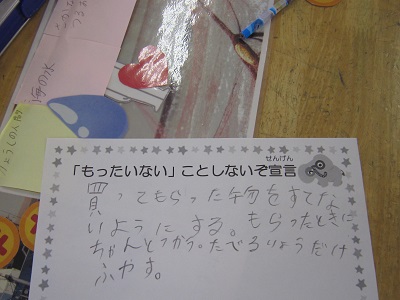 海の水
りょうしの人
「もったいない」ことしないぞ宣言
せんげん
買ってもらった物をすてな
いようにする。もらったときに
ちゃんとつかう。たべるりょうだけ
ふやす。